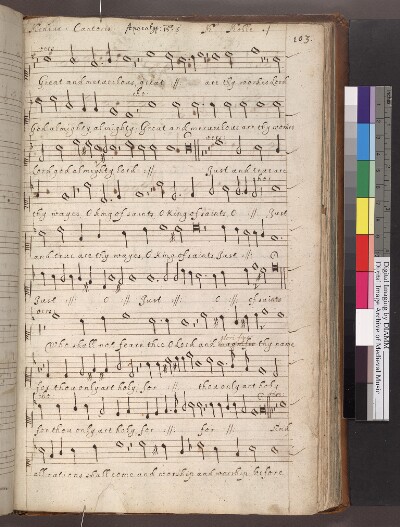 Medius Cantoris Apocalyp: 15:3 103.
vers
Great and marvelous, great :// are thy workes lord
cho
God almighty almighty. Great and marvelous are thy works
vers
lord god almighty lord :// Just and true are
cho
thy wayes O king of saints O king of saints O :// Just
and true are thy wayes O king of saints Just ://
Just :// O :// Just :// O :// of saints
vers
Who shall not feare thee O Lord and magnifie thy name
for thou only art holy for :// thou only art holy
cho
for thou only art holy for :// for :// And
all nations shall come and worship and worship before
Digital Imaging by DIAMM
Digital Image Archive of Medieval Music